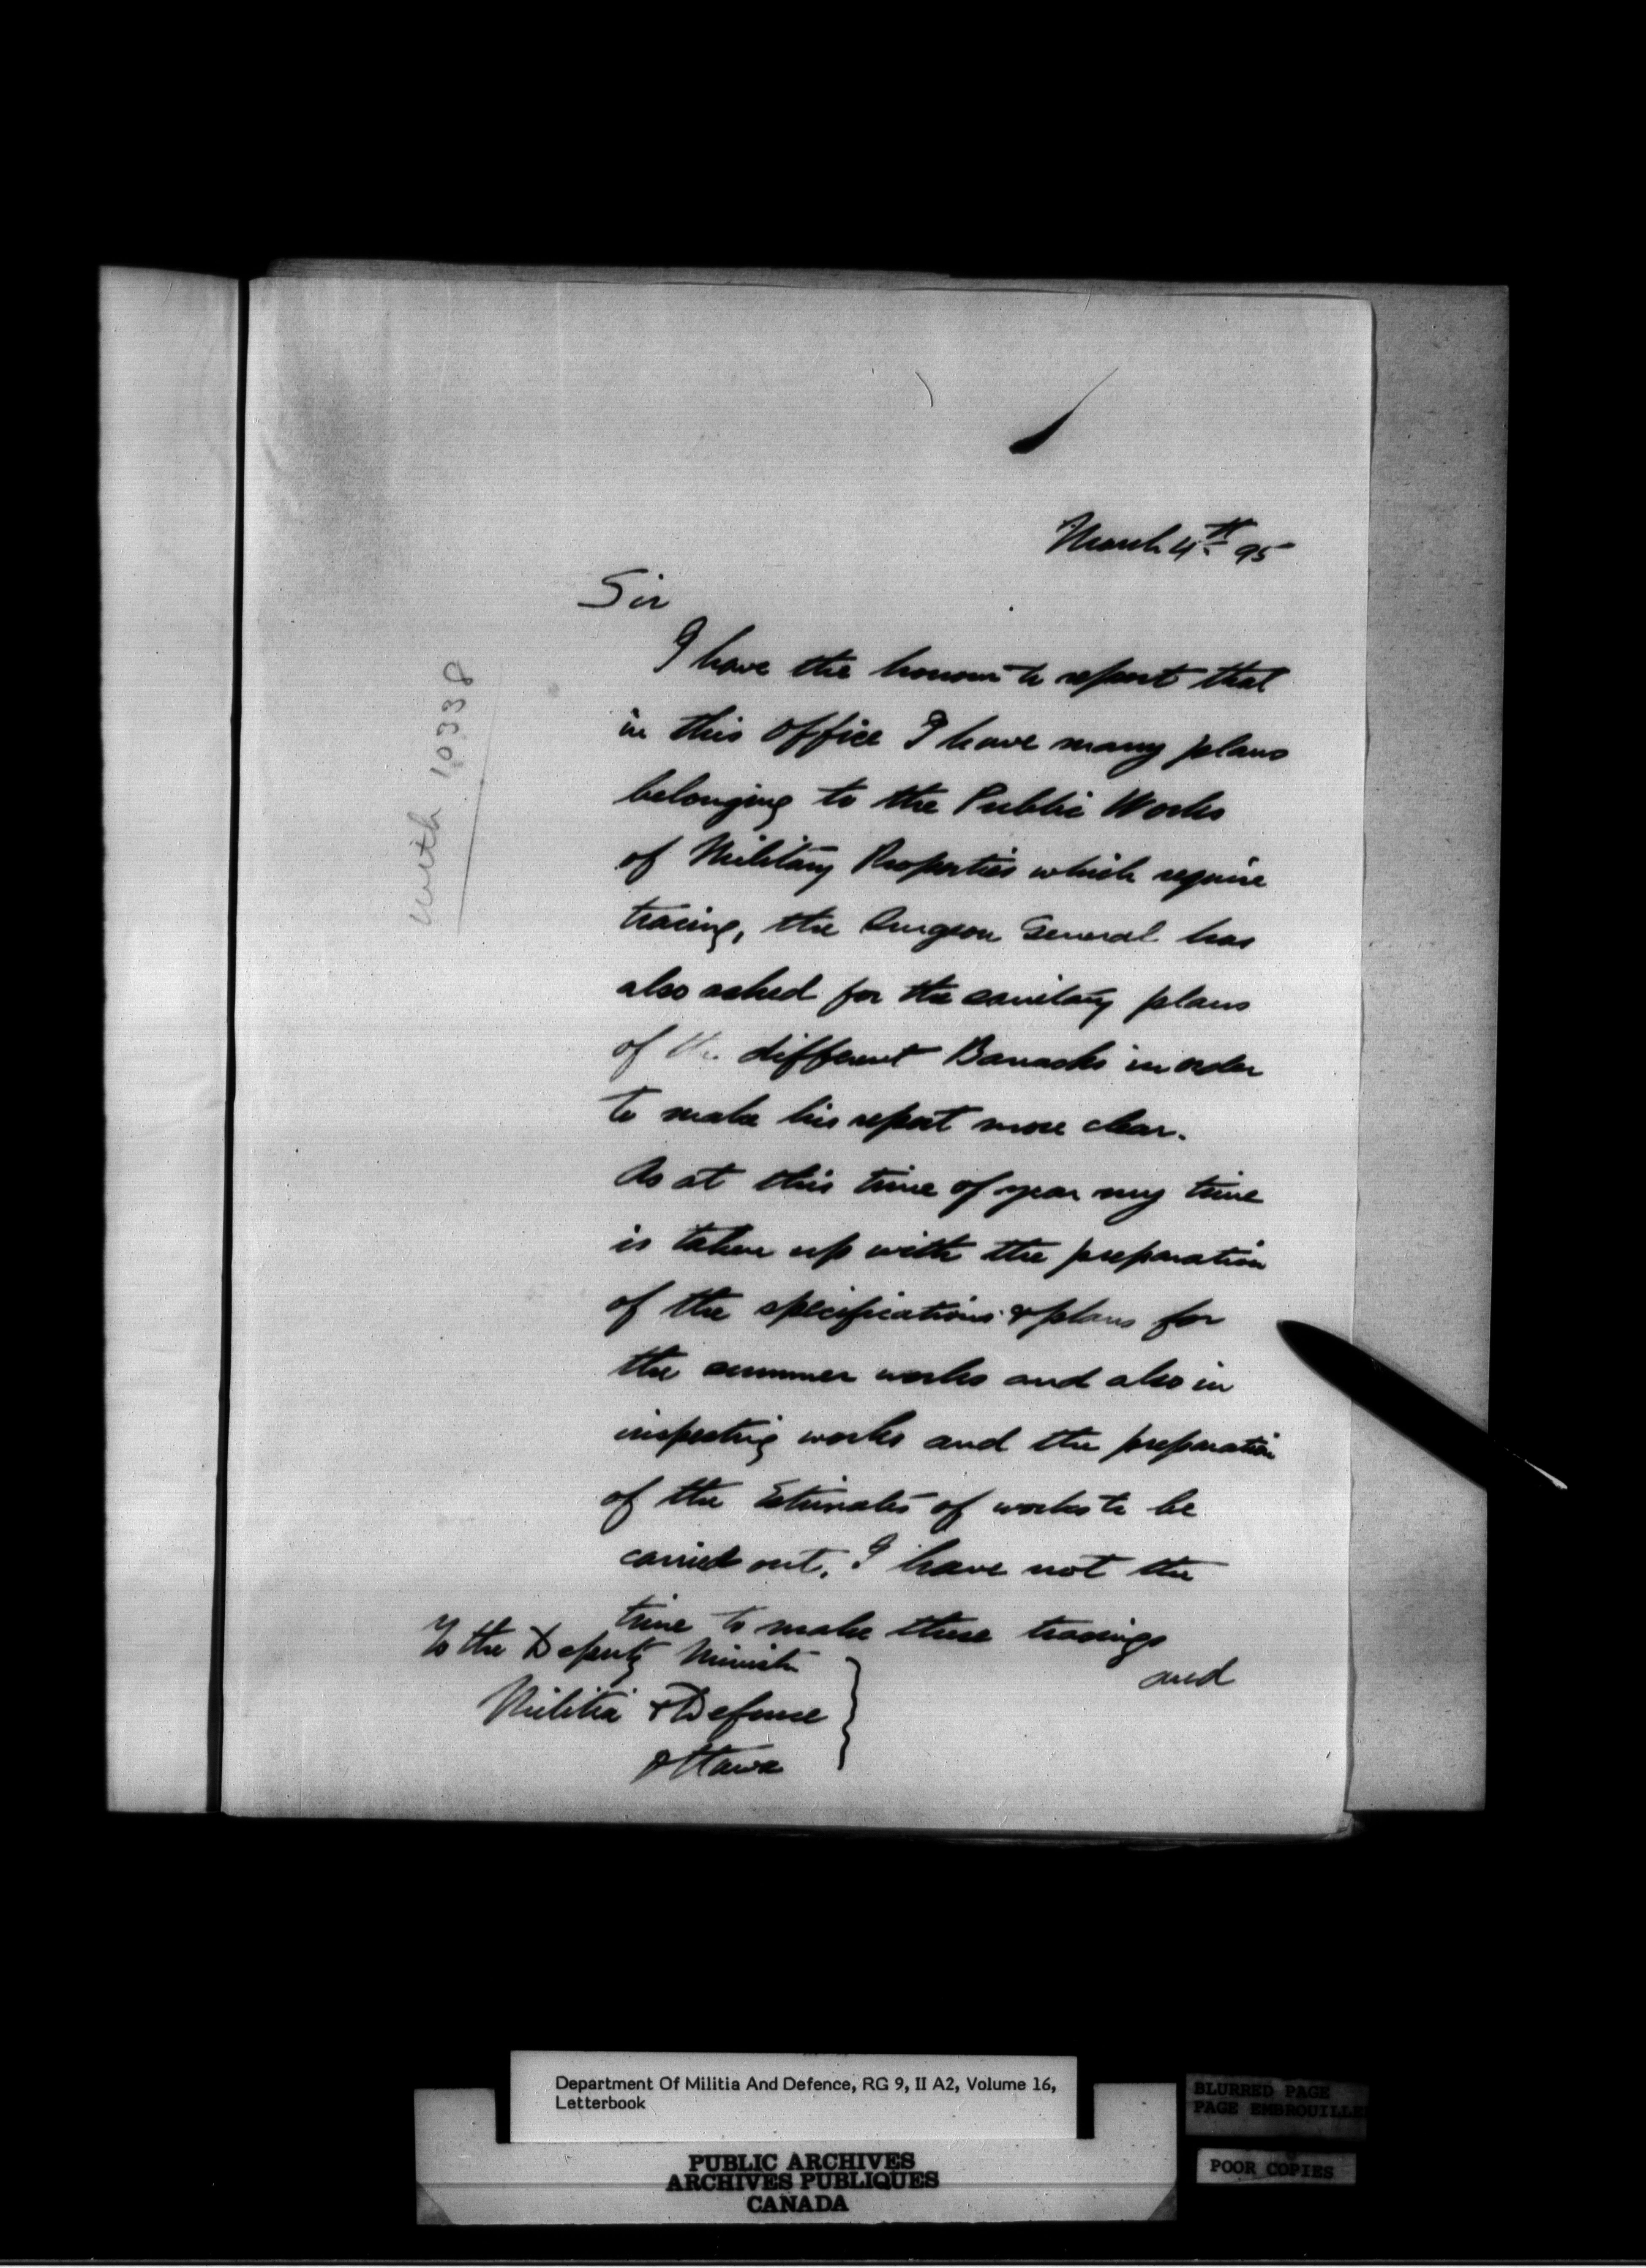 March 4th 95
Sir
I have the honour to report that
in this office I have many plans
belonging to the Public Works
of Military Properties which require
tracing, the Surgeon General has
also asked for the sanitary plans
of the different Barracks in order
to make his report more clear.
As at this time of year my time
is taken up with the preparation
of the specifications & plans for
the summer works and also in
inspecting works and the preparation
of the Estimates of works to be
carried out, I have not the
time to make these tracings
and
To the Deputy Minister
Militia & Defence
Ottawa
with 10338
Department Of Militia And Defence, RG 9, II A2, Volume 16,
Letterbook
PUBLIC ARCHIVES
ARCHIVES PUBLIQUES
CANADA
BLURRED PAGE
PAGE EMBROUILLE
POOR COPIES